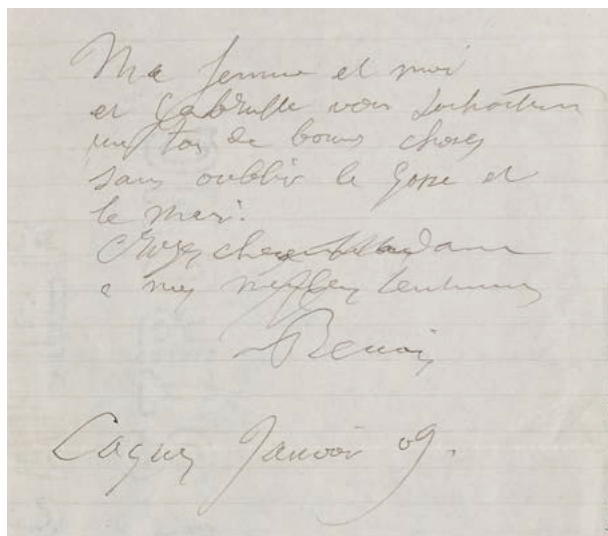 Ma femme et moi
et Gabrielle vous souhaitons
un tas de bonnes choses
sans oublier le gosse et
le mari.
Croyez chère Madame
a mes meilleurs sentiments
Renoir
Cagnes Janvier 09.